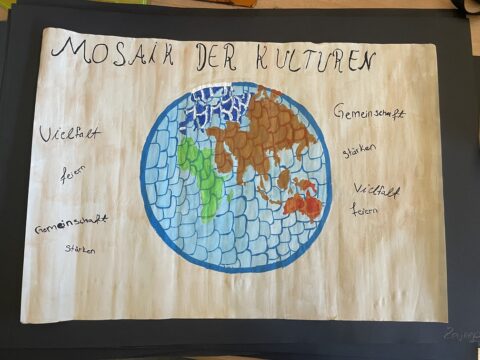 MOSAIK DER KULTUREN
Vielfalt
feiern
Gemeinschaft
stärken
Gemeinschaft
stärken
Vielfalt
feiern